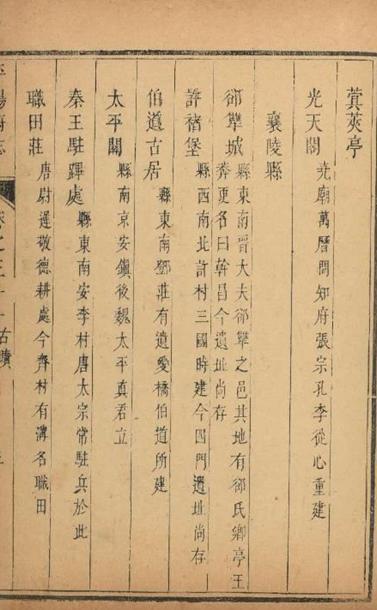 蓂莢亭
光天閣 堯廟萬曆間知府張宗孔李從心重建
襄陵縣
郤犨城 縣東南晋大夫郤犨之邑其地有郤氏鄉亭王
莽更名曰幹昌今遺址尚存
許褚堡 縣西南北許村三國時建今四門遺址尚存
伯道古居 縣東南鄧莊有遺愛橋伯道所建
太平關 縣南京安鎮後魏太平真君立
秦王駐蹕處 縣東南安李村唐太宗常駐兵於此
職田莊 唐尉遲敬德耕處今齊村有溝名職田
平陽府志 卷之三十一古蹟